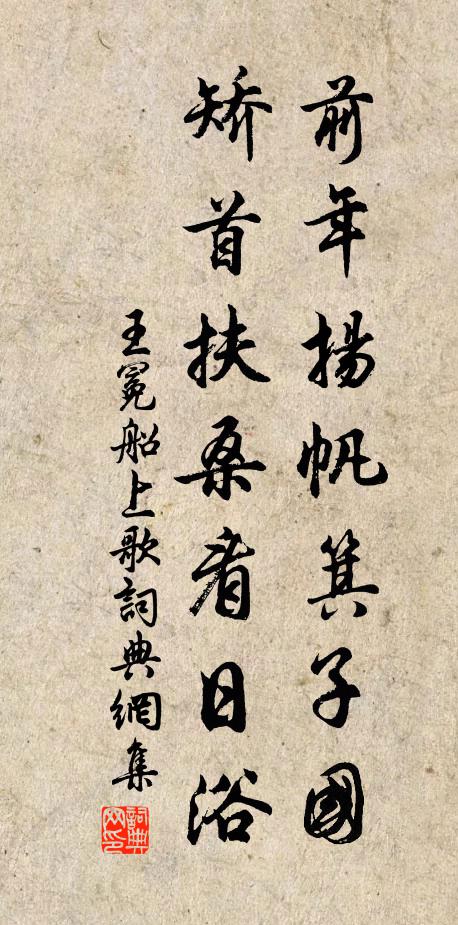 前年揚帆箕子國
矯首扶桑看日浴
王冕船上歌詞典網集
詞典网印